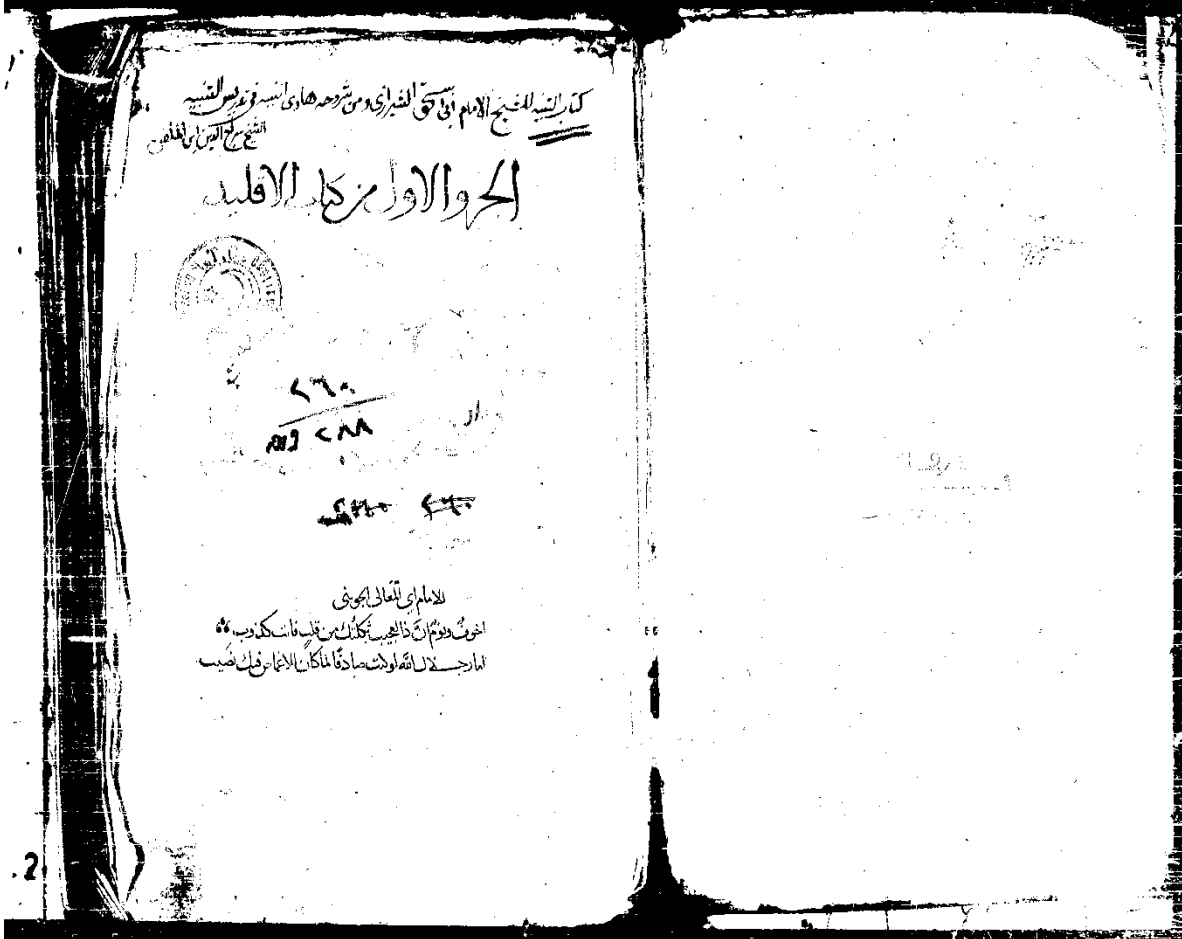 كتاب التنبيه للشيخ الامام ابى اسحق الشيرازى ومن شروحه هادى النبيه فى تدريس التنبيه
الشيخ سراج الدين ابن الملقن
الجزو الاول من كتاب الاقليد
٢٦٠
٢٨٨
٢٦٠
للامام ابى المعالى الجوينى
اخوف ونوم ان ذا لعجيب ثكلتك من قلب فانت كذوب
اما وجلال الله لو كنت صادقا لما كان للاغماض فيك نصيب
2